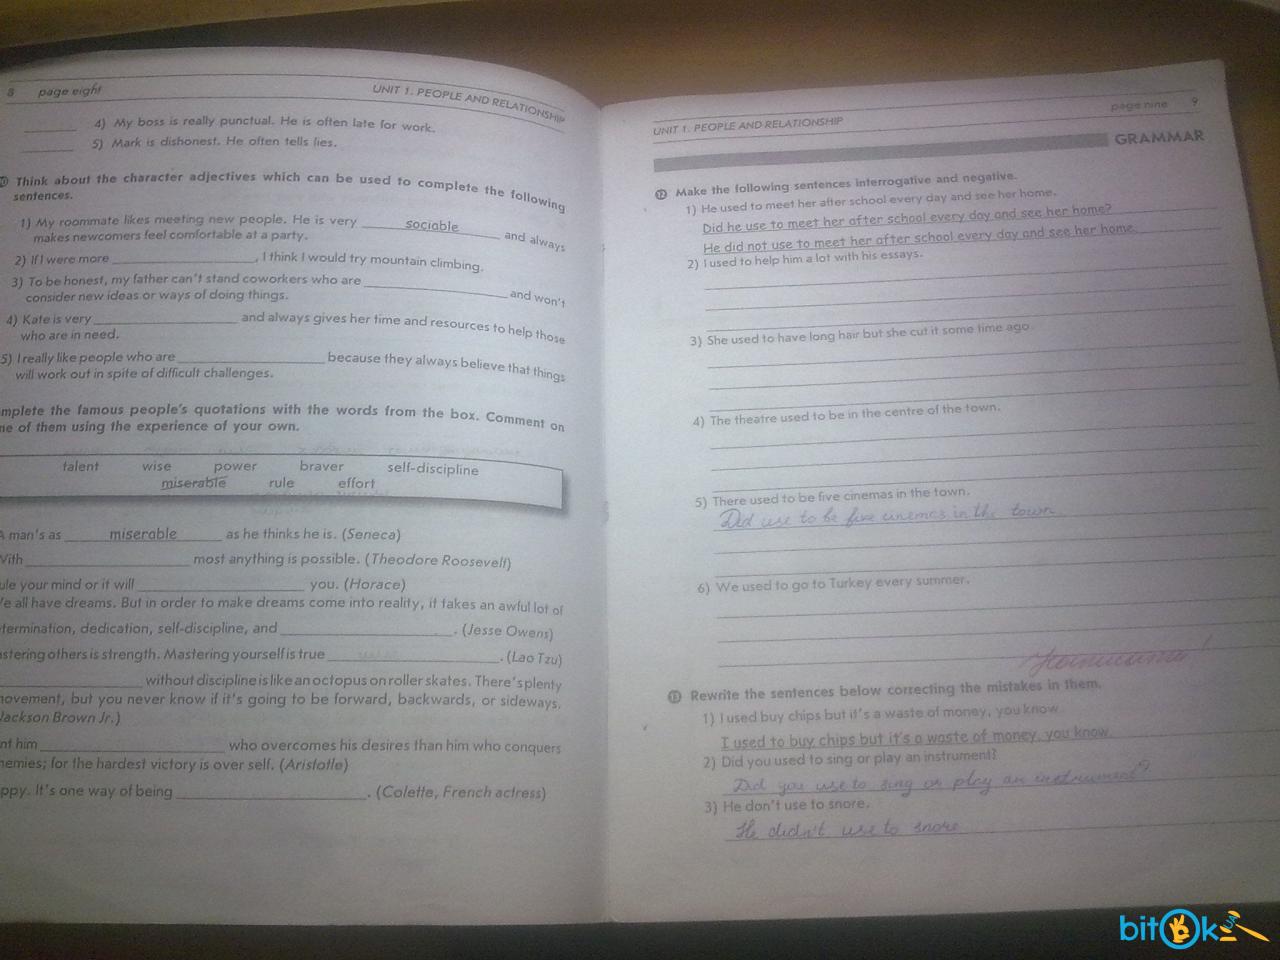 8 page eight
UNIT 1. PEOPLE AND RELATIONSHIP
4) My boss is really punctual. He is often late for work.
5) Mark is dishonest. He often tells lies.
Think about the character adjectives which can be used to complete the following
sentences.
1) My roommate likes meeting new people. He is very sociable and always
makes newcomers feel comfortable at a party.
2) If I were more , I think I would try mountain climbing.
3) To be honest, my father can't stand coworkers who are and won't
consider new ideas or ways of doing things.
4) Kate is very and always gives her time and resources to help those
who are in need.
5) I really like people who are because they always believe that things
will work out in spite of difficult challenges.
mplete the famous people's quotations with the words from the box. Comment on
ne of them using the experience of your own.
talent wise power braver self-discipline
miserable rule effort
A man's as miserable as he thinks he is. (Seneca)
With most anything is possible. (Theodore Roosevelt)
ule your mind or it will you. (Horace)
e all have dreams. But in order to make dreams come into reality, it takes an awful lot of
termination, dedication, self-discipline, and . (Jesse Owens)
stering others is strength. Mastering yourself is true . (Lao Tzu)
without discipline is like an octopus on roller skates. There's plenty
movement, but you never know if it's going to be forward, backwards, or sideways.
Jackson Brown Jr.)
nt him who overcomes his desires than him who conquers
nemies; for the hardest victory is over self. (Aristotle)
ppy. It's one way of being . (Colette, French actress)
page nine 9
UNIT 1. PEOPLE AND RELATIONSHIP
GRAMMAR
12 Make the following sentences interrogative and negative.
1) He used to meet her after school every day and see her home.
Did he use to meet her after school every day and see her home?
He did not use to meet her after school every day and see her home.
2) I used to help him a lot with his essays.
3) She used to have long hair but she cut it some time ago.
4) The theatre used to be in the centre of the town.
5) There used to be five cinemas in the town.
Did use to be five cinemas in the town
6) We used to go to Turkey every summer.
13 Rewrite the sentences below correcting the mistakes in them.
1) I used buy chips but it's a waste of money, you know.
I used to buy chips but it's a waste of money, you know.
2) Did you used to sing or play an instrument?
Did you use to sing or play an instrument?
3) He don't use to snore.
He didn't use to snore
bitOk UA